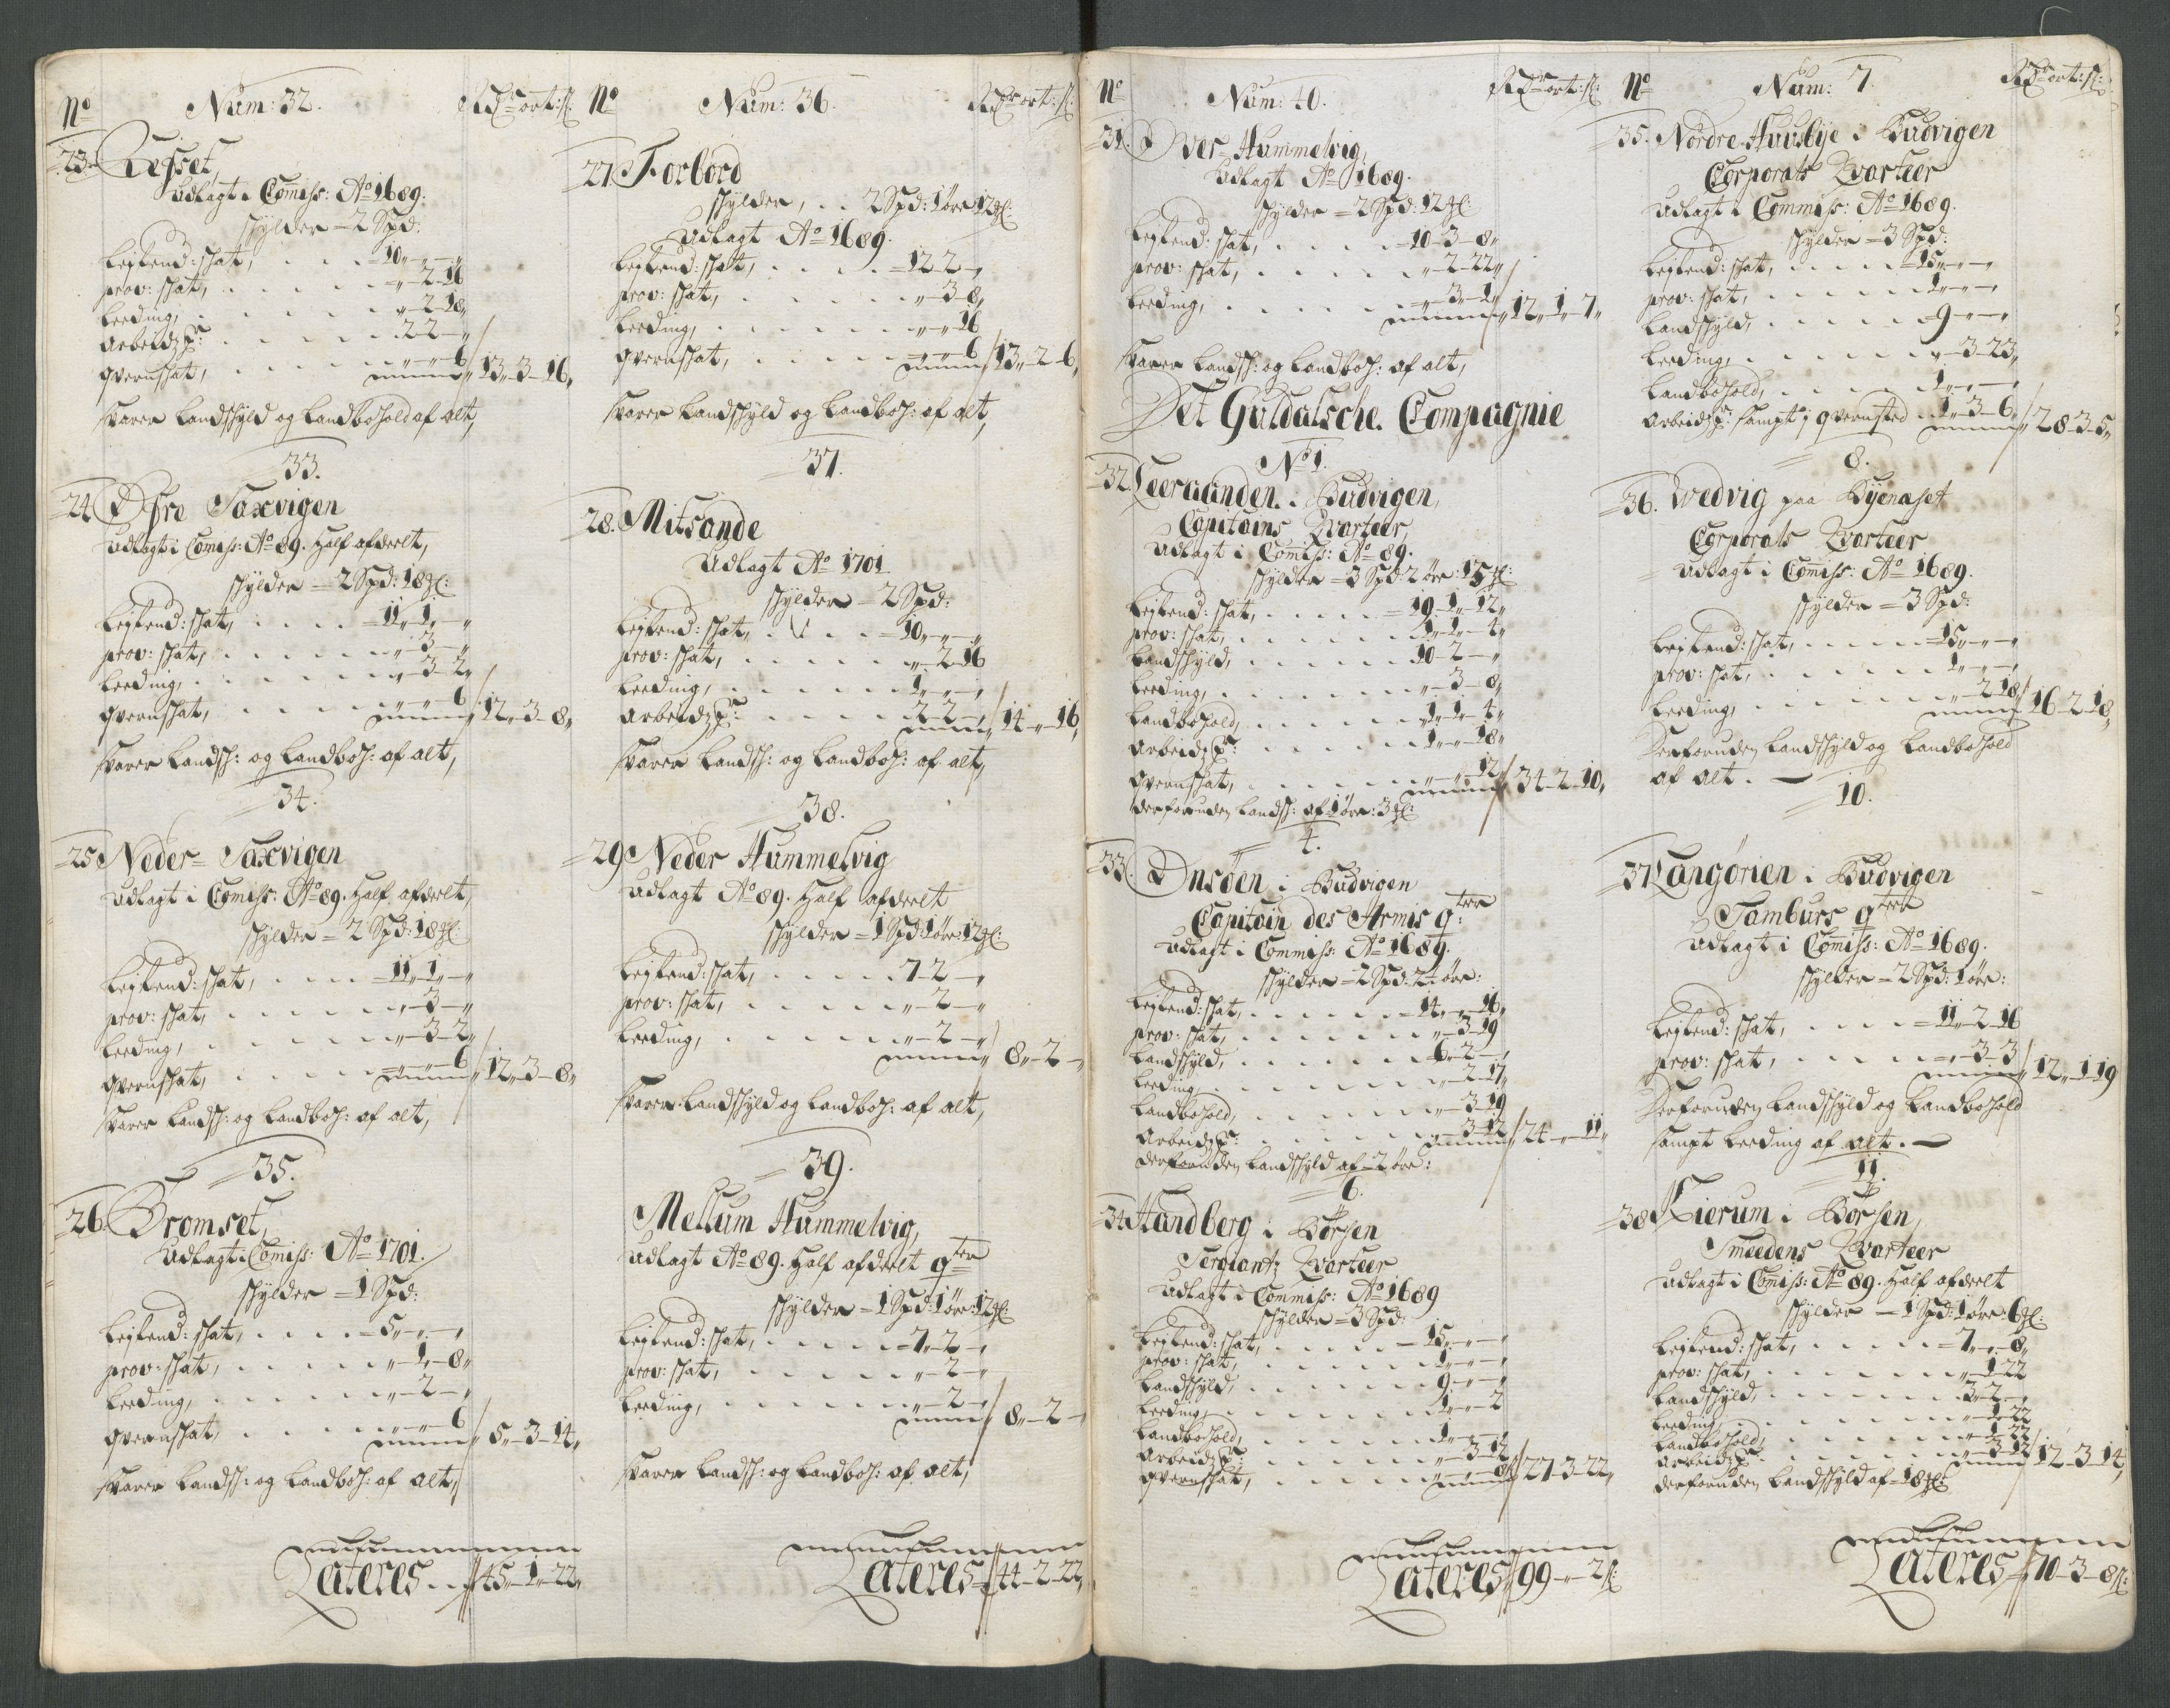 No Num: 32. Rdr ort: s:
23. Refset,
Udlagt i Comiss: Ao 1689.
skylder = 2 Spd:
Leylend: skat, . . . = 10 „ – „ – „
prov: skat, . . . . . „ – 2 – 16
Leeding, . . . . . „ – 2 – 18 „
Arbeidz P: . . . . . 2 – 2 – „
qvernskat, . . . . „ – „ – 6 / 13 „ – 3 – 16 „
svarer Landskyld og Landbohold af alt,
33.
24. Øfre Saxvigen
Udlagt i Comiss: Ao 89. half afdeelt,
skylder = 2 Spd: 18 ℳ:
Leylend: skat, . . . = 11 „ – 1 „ – „
prov: skat, . . . . . „ – 3 – „
Leeding, . . . . . „ – 3 – 2 „
qvernskat, . . . . „ – „ – 6 / 12 „ – 3 – 8 „
svarer Landsk: og Landboh: af alt,
34.
25. Neder = Saxvigen
Udlagt i Comiss: Ao 89. half afdeelt,
skylder = 2 Spd: 18 ℳ:
Leylend: skat, . . . = 11 „ – 1 „ – „
prov: skat, . . . . . „ – 3 – „
Leeding, . . . . . „ – 3 – 2 „
qvernskat, . . . . „ – „ – 6 / 12 „ – 3 – 8 „
svarer Landsk: og Landboh: af alt,
35.
26. Bromset,
Udlagt i Comiss: Ao 1701.
skylder = 1 Spd:
Leylend: skat, . . . = 5 „ – „ – „
prov: skat, . . . . . „ – 1 „ – 8 „
Leeding, . . . . . „ – 2 – „
qvernskat, . . . . „ – „ – 6 / 5 „ – 3 – 14 „
svarer Landsk: og Landboh: af alt,
Lateres . . 45 „ – 1 „ – 22 „
No Num: 36. Rdr ort: s:
27. Forbord
skylder, . . 2 Spd: 1 øre 12 ℳ:
Udlagt Ao 1689.
Leylend: skat, . . . = 12 – 2 – „
prov: skat, . . . . . „ – 3 – 8 „
Leeding, . . . . . „ – „ – 16
qvernskat, . . . . „ – „ – 6 / 13 „ – 2 – 6 „
svarer Landskyld og Landboh: af alt,
37.
28. Mitsande
Udlagt Ao 1701.
skylder = 2 Spd:
Leylend: skat, . . . = 10 „ – „ – „
prov: skat, . . . . . „ – 2 – 16
Leeding, . . . . . 1 „ – „ – „
Arbeidz P: . . . . . 2 – 2 – „ / 14 – „ – 16 „
svarer Landsk: og Landboh: af alt,
38.
29. Neder Hummelvig
Udlagt Ao 89. half afdeelt
skylder = 1 Spd: 1 øre: 12 ℳ:
Leylend: skat, . . . . 7 – 2 – „
prov: skat, . . . . . „ – 2 – „
Leeding, . . . . . „ – 2 – „ / 8 „ – 2 – „
svarer Landskyld og Landboh: af alt,
39.
Mellum Hummelvig,
Udlagt Ao 89. half afdeelt qter
skylder = 1 Spd: 1 øre: 12 ℳ:
Leylend: skat, . . . = 7 „ – 2 – „
prov: skat, . . . . . „ – 2 – „
Leeding, . . . . . „ – 2 – „ / 8 „ – 2 – „
svarer Landsk: og Landboh: af alt,
Lateres = 44 – 2 – 22 „
No Num: 40. Rdr ort: s:
31. Over = Hummelvig,
Udlagt Ao 1689.
skylder = 2 Spd: 12 ℳ:
Leylend: skat, . . . = 10 – 3 – 8 „
prov: skat, . . . . . „ – 2 – 22 „
Leeding, . . . . . „ – 3 „ – 1 „ / 12 „ – 1 – 7 „
svarer Landsk: og Landboh: af alt,
Det Guldalsche Compagnie
No 1.
32. Leeraanden i Budvigen,
Capitains Qvarteer,
Udlagt i Comiss: Ao 89.
skylder = 3 Spd: 2 øre: 15 ℳ:
Leylend: skat, . . . = 19 – 1 – 12 „
prov: skat, . . . . . 1 „ – 1 – 4 „
Landskyld, . . . . . 10 – 2 – „
Leeding, . . . . . „ – 3 – 8 „
Landbohold, . . . . . 1 „ – 1 – 4 „
Arbeidz P: . . . . . 1 „ – „ – 18 „
qvernskat, . . . . „ – „ – 12 / 34 – 2 – 10 „
derforuden Landsk: af 1 øre: 3 ℳ:
4.
33. Onsöen i Budvigen
Capitain des Armis qter
Udlagt i Commiss: Ao 1689.
skylder = 2 Spd: 2 øre:
Leylend: skat, . . . . 14 „ – „ – 16 „
prov: skat, . . . . . „ – 3 – 19
Landskyld, . . . . . 6 – 2 – „
Leeding, . . . . . „ – 2 – 17 „
Landbohold, . . . . . „ – 3 – 19
Arbeidz P: . . . . . „ – 3 – 12 / 24 – „ – 11 „
derforuden Landskyld af = 2 øre:
6.
34. Handberg i Börsen
Sergiantz Qvarteer
Udlagt i Commiss: Ao 1689
skylder = 3 Spd:
Leylend: skat, . . . – 15 „ – „ – „
prov: skat, . . . . . 1 „ – „ – „
Landskyld, . . . . . 9 – „ – „
Leeding, . . . . . 1 „ – „ – 2
Landbohold, . . . . . 1 „ – „ – „
Arbeidz P: . . . . . „ – 3 – 12
qvernskat, . . . . „ – „ – 8 / 27 – 3 – 22 „
Lateres 99 – „ – 2 s:
No Num: 7. Rdr ort: s:
35. Nordre Huusbye i Budvigen
Corporals Qvarteer
Udlagt i Commiss: Ao 1689.
skylder = 3 Spd:
Leylend: skat, . . . . 15 „ – „ – „
prov: skat, . . . . . 1 „ – „ – „
Landskyld, . . . . . 9 – „ – „
Leeding, . . . . . „ – 3 – 23 „
Landbohold, . . . . . 1 „ – „ – „
Arbeidz P: sampt qvernsted . 1 – 3 – 6 „ / 28 – 3 – 5 „
8.
36. Wedvig paa Byenæset
Corporals Qvarteer
Udlagt i Comiss: Ao 1689.
skylder = 3 Spd:
Leylend: skat, . . . . = 15 „ – „ – „
prov: skat, . . . . . 1 „ – „ – „
Leeding, . . . . . „ – 2 – 18 / 16 – 2 – 18 „
Derforuden Landskyld og Landbohold
af alt. —
10.
37. Langörien i Budvigen
Tamburs qter
Udlagt i Comiss: Ao 1689.
skylder = 2 Spd: 1 øre:
Leylend: skat, . . . = 11 „ – 2 – 16
prov: skat, . . . . . „ – 3 – 3 / 12 „ – 1 – 19
Derforuden Landskyld og Landbohold
sampt Leeding af alt. —
11.
38. Kierum i Börsen,
Smeedens Qvarteer
Udlagt i Comiss: Ao 89. half afdeelt
skylder – 1 Spd: 1 øre: 6 ℳ:
Leylend: skat, . . . = 7 „ – „ – 8 „
prov: skat, . . . . . „ – 1 – 22
Landskyld, . . . . . 3 – 2 – „
Leeding, . . . . . „ – 1 – 22
Landbohold, . . . . . „ – 1 – 22
Arbeidz P: . . . . . „ – 3 – 12 / 12 – 3 – 14 „
derforuden Landskyld af = 18 ℳ:
Lateres = 70 – 3 – 8 s: